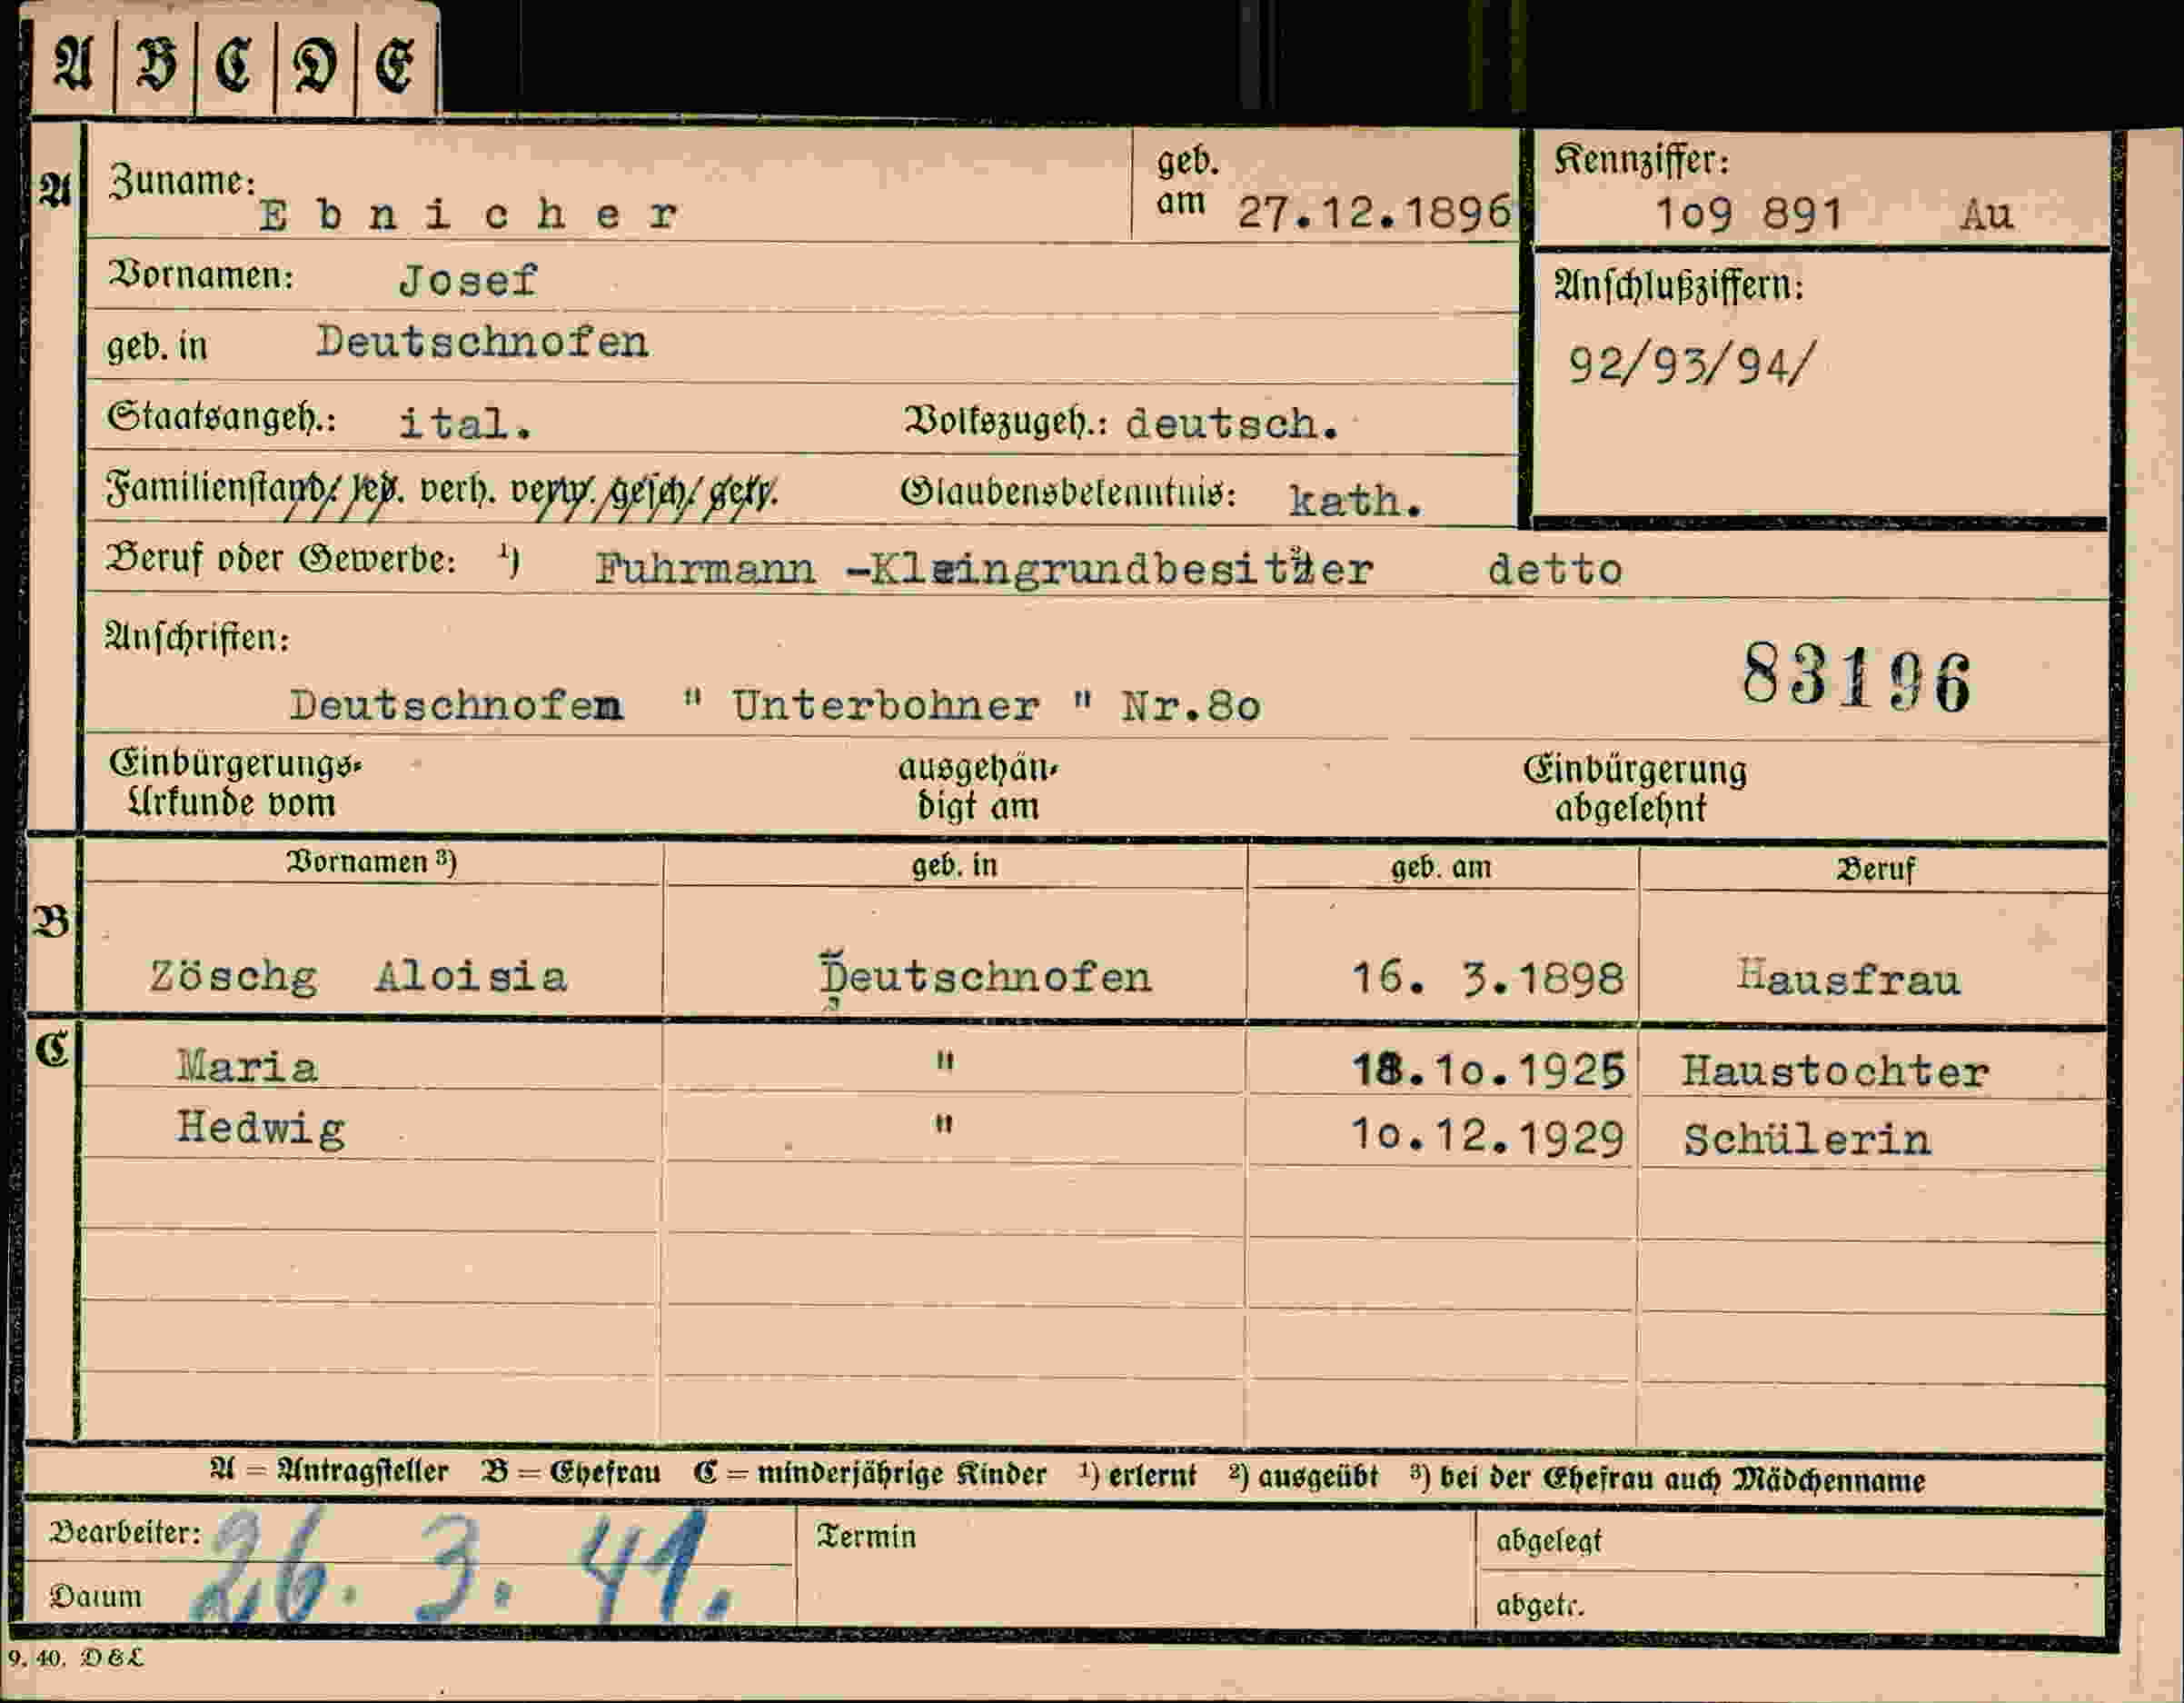 A B C D E
A Zuname: Ebnicher geb. am 27.12.1896 Kennziffer: 1o9 891 Au
Vornamen: Josef
Anschlußziffern:
geb. in Deutschnofen
92/93/94/
Staatsangeh.: ital. Volkszugeh.: deutsch.
Familienstand: led. verh. verw. gesch. getr. Glaubensbekenntnis: kath.
Beruf oder Gewerbe: 1) Fuhrmann -Kleingrundbesitzer 2) detto
Anschriften:
83196
Deutschnofen " Unterbohner " Nr.8o
Einbürgerungs- ausgehän- Einbürgerung
Urkunde vom digt am abgelehnt
Vornamen 3) geb. in geb. am Beruf
B
Zöschg Aloisia Deutschnofen 16. 3.1898 Hausfrau
C
Maria " 18.1o.1925 Haustochter
Hedwig " 1o.12.1929 Schülerin
A = Antragsteller B = Ehefrau C = minderjährige Kinder 1) erlernt 2) ausgeübt 3) bei der Ehefrau auch Mädchenname
Bearbeiter: 26. 3. 41. Termin abgelegt
Datum abgetr.
9. 40. D & L